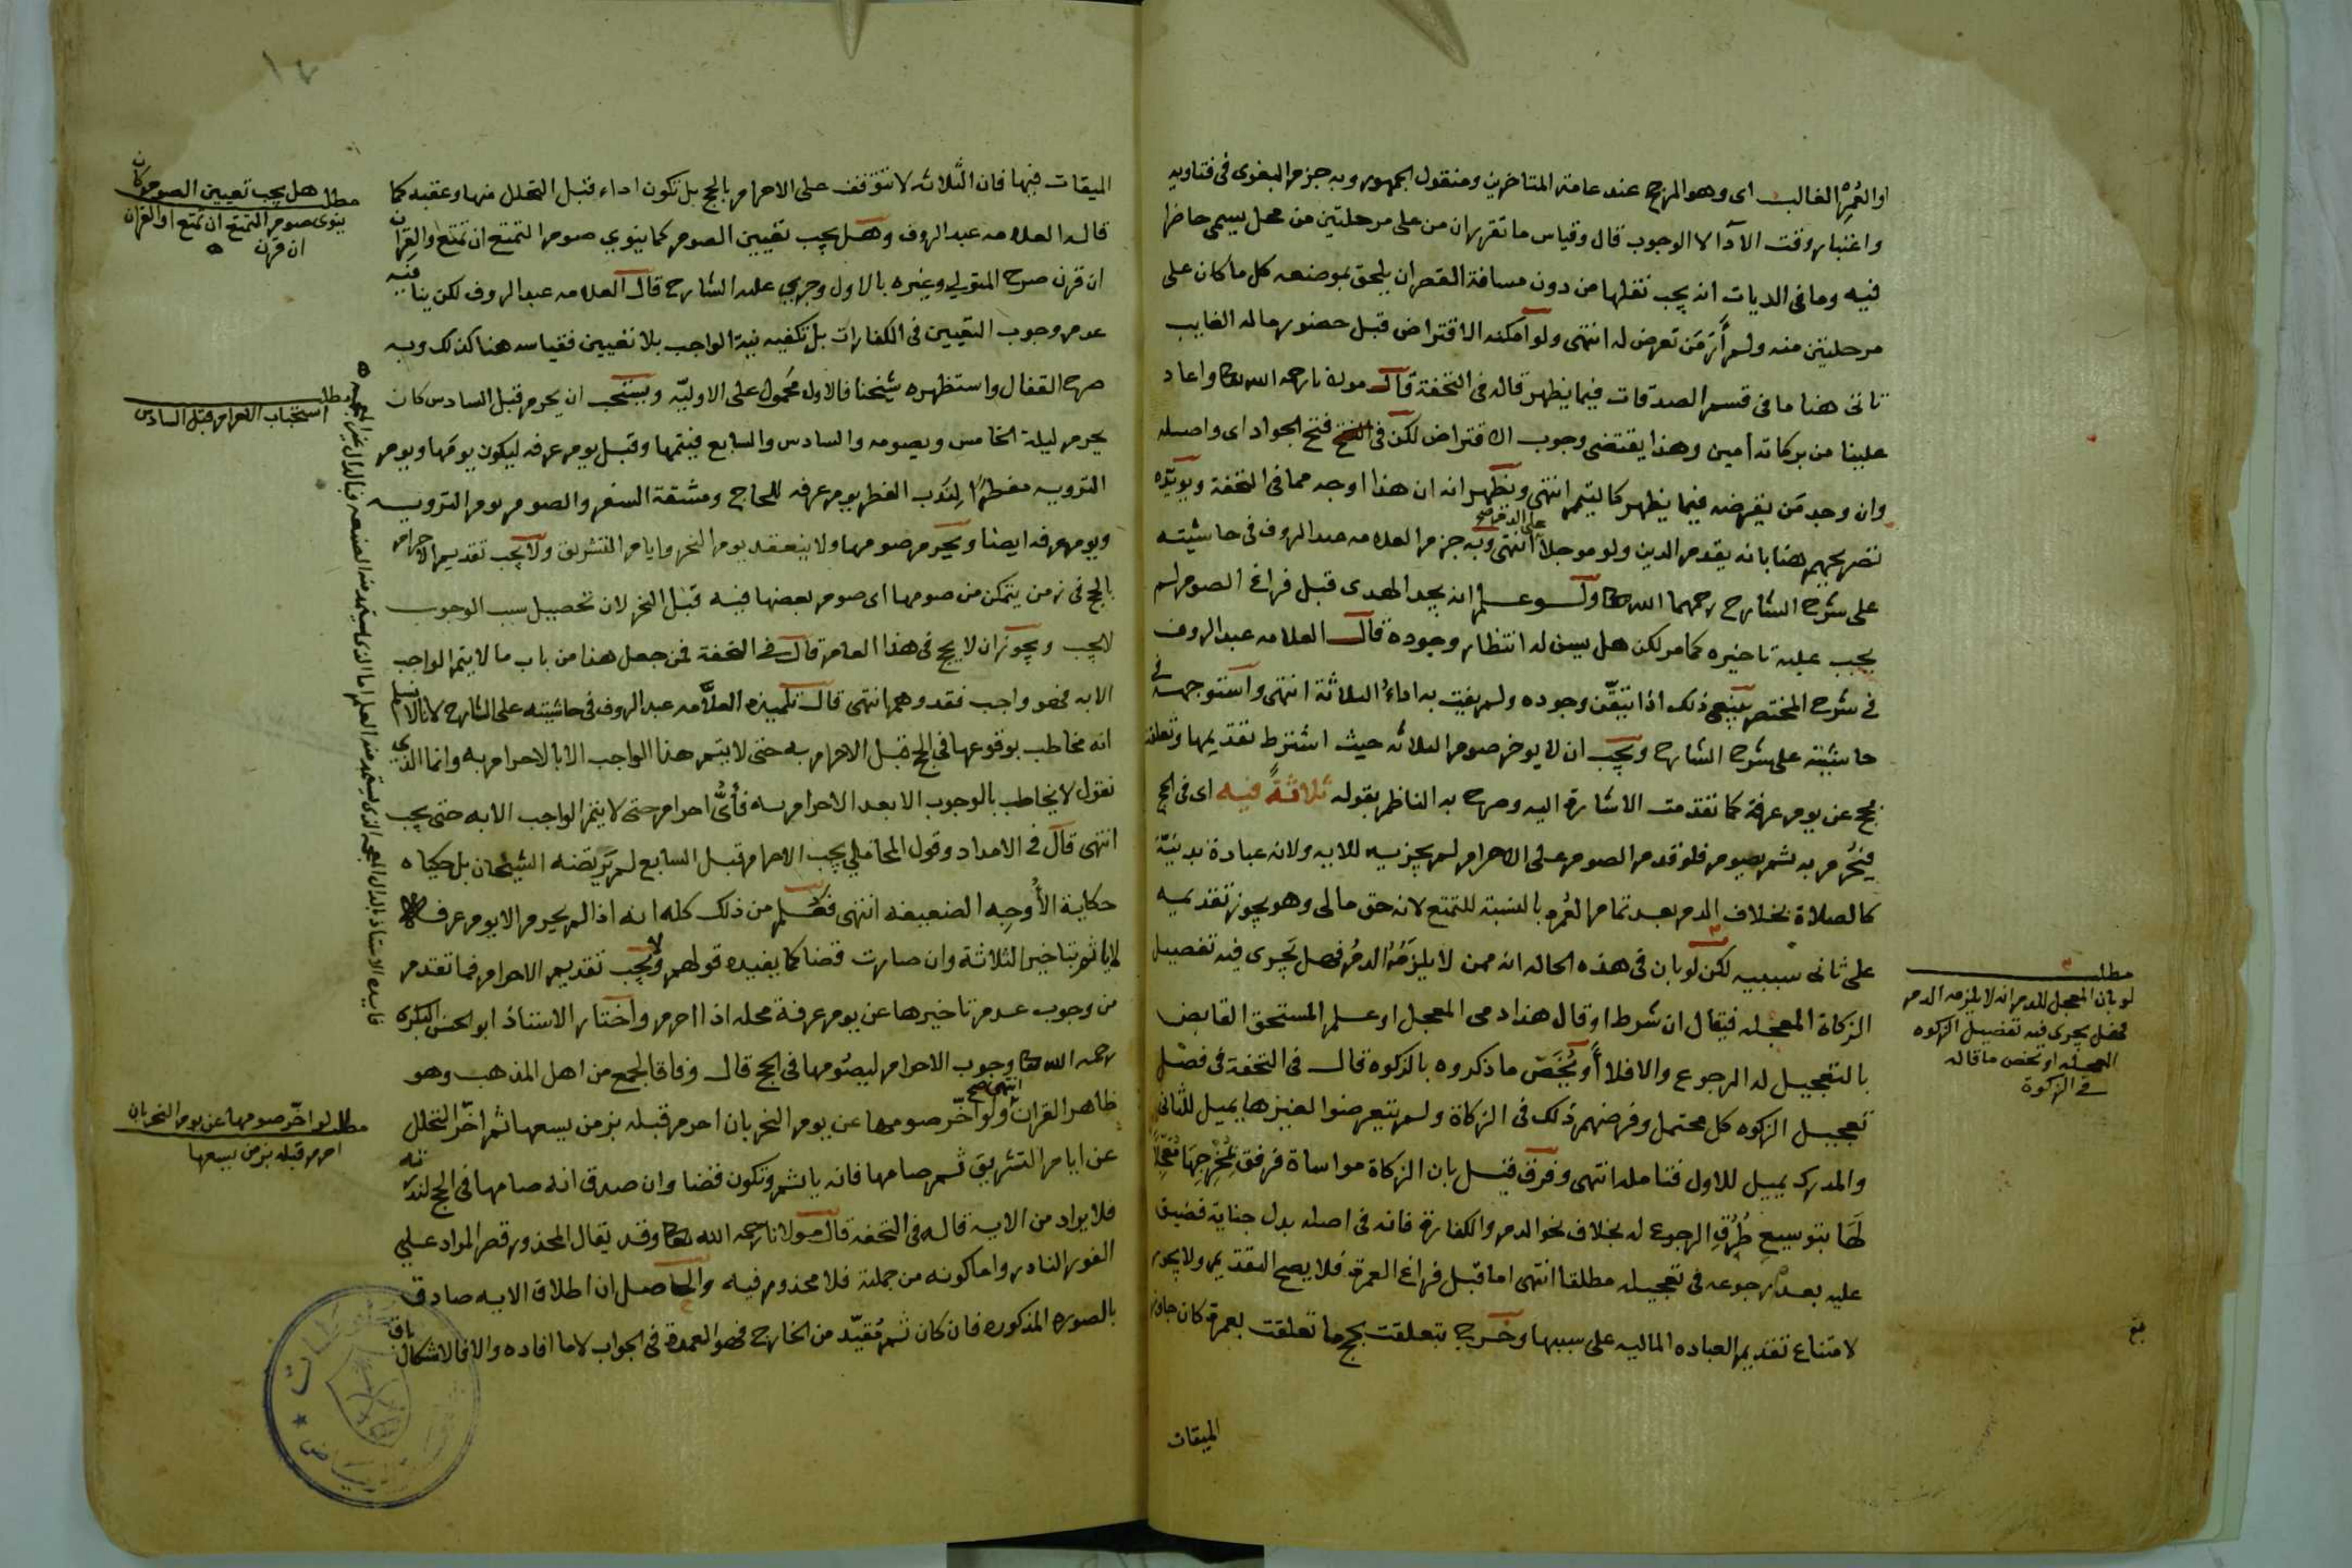 او العُمُرْ الغالب اى وهو المرجح عند عامة المتاخرين ومنقول الجمهور وبه جزم البغوى فى فتاويه
واعتبار وقت الآدا لا الوجوب قال وقياس ما تقرر ان من على مرحلتين من محل يسمى حاضرا
فيه وما فى الديات انه يجب نقلها من دون مسافة القصر ان يلحق بموضعه كل ما كان على
مرحلتين منه ولم أرَ مَن تعرض له انتهى ولو امكنه الاقتراض قبل حضور ماله الغايب
تاتى هنا ما فى قسم الصدقات فيما يظهر قاله فى التحفة قال مولانا رحمه الله تعا واعاد
علينا من بركاته أمين وهذا يقتضى وجوب الاقتراض لكن فى فتح الجواد اى واصله
وان وجد مَن يقرضه فيما يظهر كالتيمم انتهى ويظهر انه ان هذا اوجه مما فى التحفة ويويّده
تصريحهم هنا بانه يقدم الدين ولو موجلاً على الدم صح انتهى وبه جزم العلامه عبد الروف فى حاشيته
على شرح الشارح رحمهما الله تعا ولو علم انه يجد الهدى قبل فراغ الصوم لم
يجب عليه تاخيره كما مر لكن هل يسن له انتظار وجوده قال العلامه عبد الروف
فى شرح المختصر ينبغى ذلك اذا تيقّن وجوده ولم يفت به اداءُ الثلاثة انتهى واستوجهه فى
حاشيته على شرح الشارح ويجب ان لا يوخر صوم الثلاثه حيث اشترط تقديمها وتعلقت
بحج عن يوم عرفة كما تقدمت الاشارة اليه وصرح به الناظم بقوله ثلاثةً فيه اى فى الحج
فيُحْرم به ثم يصوم فلو قدم الصوم على الاحرام لم يجزيه للايه ولانه عبادة بدنيّة
كالصلاة بخلاف الدم بعد تمام العُمره بالنسبة للتمتع لانه حق مالى وهو يجوز تقديمه
على ثانى سببيه لكن لو بان فى هذه الحاله انه ممن لا يلزَمُهُ الدمُ فهل يَجرى فيه تفصيل
الزكاة المعجله فيقال ان شرط او قال هذا دمى المعجل او علم المستحق القابض
بالتعجيل له الرجوع والا فلا أو يُخَصّ ما ذكروه بالزكوه قال فى التحفة فى فصل
تعجيل الزكوه كل محتمل وفرضهم ذلك فى الزكاة ولم يتعرضوا لغيرها يميل للثانى
والمدرك يميل للاول فتامله انتهى وفرق قيل بان الزكاة مواساة فرفق بمُخْرِجِهَا مُعَجِّلاً
لَهَا بتوسيع طُرُقِ الرجوع له بخلاف نحو الدم والكفارة فانه فى اصله بدل جناية فضيق
عليه بعدم رجوعه فى تعجيله مطلقا انتهى اما قبل فراغ العمرة فلا يصح التقديم ولا يجوز
لامتناع تقديم العباده الماليه على سببها وخرج بتعلقت بحج ما تعلقت بعمرة كان جاوز
الميقات
مطلب
لو بان المعجل للدم انه لا يلزمه الدم
فهل يجرى فيه تفصيل الزكوه
المعجله او يخص ما قاله
فى الزكوة
بلغ
الميقات فيها فان الثلاثه لا تتوقف على الاحرام بالحج بل تكون اداء قبل التحلل منها وعقبه كما
قاله العلامه عبد الروف وهل يجب تعيين الصوم كما ينوي صوم التمتع ان تمتع والقِران
ان قرن صرح المتولي وغيره بالاول وجرى عليه الشارح قال العلامه عبد الروف لكن ينافيه
عدم وجوب التعيين فى الكفارات بل تكفيه نية الواجب بلا تعيين فقياسه هنا كذلك وبه
صرح القفال واستظهره شيخنا فالاول محمول على الاوليّه ويستحب ان يحرم قبل السادس كان
يحرم ليلة الخامس ويصومه والسادس والسابع فيتمها وقبل يوم عرفه ليكون يومَها ويوم
الترويه مفطرًا لِنَدب الفطر يوم عرفه للحاج ومشقة السفر والصوم يوم الترويه
ويوم عرفه ايضا ويحرم صومها ولا ينعقد يوم النحر وايام التشريق ولا يجب تقديم الاحرام
بالحج فى زمن يتمكن من صومها اى صوم بعضها فيه قبل النحر لان تحصيل سبب الوجوب
لا يجب ويجوز ان لا يحج فى هذا العام قال فى التحفة فمن جعل هذا من باب ما لا يتم الواجب
الا به فهو واجب فقد وهم انتهى قال تلميذه العلاّمه عبد الروف فى حاشيته على الشارح لانا لا نسلم
انه مخاطب بوقوعها فى الحج قبل الاحرام به حتى لا يتم هذا الواجب الا بالاحرام به وانما الذى
نقول لا يخاطب بالوجوب الا بعد الاحرام به فأىُّ احرام حتى لا يتم الواجب الا به حتى يجب
انتهى قال فى الامداد وقول المحاملي يجب الاحرام قبل السابع لم يَرتضه الشيخان بل حكياه
حكاية الأَوجِه الضعيفه انتهى فعُلم من ذلك كله انه اذا لم يحرم الا يوم عرفه
لا ياثم بتاخير الثلاثة وان صارت قضا كما يفيده قولهم ولا يجب تقديم الاحرام فما تقدم
من وجوب عدم تاخيرها عن يوم عرفة محله اذا احرم واختار الاستاذ ابو الحسن البكرى
رحمه الله تعا وجوب الاحرام ليصُومها فى الحج قال وفاقا لجمع من اهل المذهب وهو
ظاهر القران انتهى صح ولو اخّر صومها عن يوم النحر بان احرم قبله بزمن يسعها ثم اخّر التحلل
عن ايام التشريق ثم صامها فانه ياثم وتكون قضا وان صدق انه صامها فى الحج لندرته
فلا يراد من الايه قاله فى التحفه قال مولانا رحمه الله تعا وقد يقال المحذور قصر المراد على
الفور النادر واما كونه من جملته فلا محذور فيه والحاصل ان اطلاق الايه صادق
بالصوره المذكوره فان كان ثم مُقيّد من الخارج فهو العمدة فى الجواب لا ما افاده والا فالاشكال باق
مطلب هل يجب تعيين الصوم كان
ينوى صوم التمتع ان تمتع او القران
ان قرن
مطلب
استحباب الاحرام قبل السادس
مطلب لو اخّر صومها عن يوم النحر بان
احرم قبله بزمن يسعها